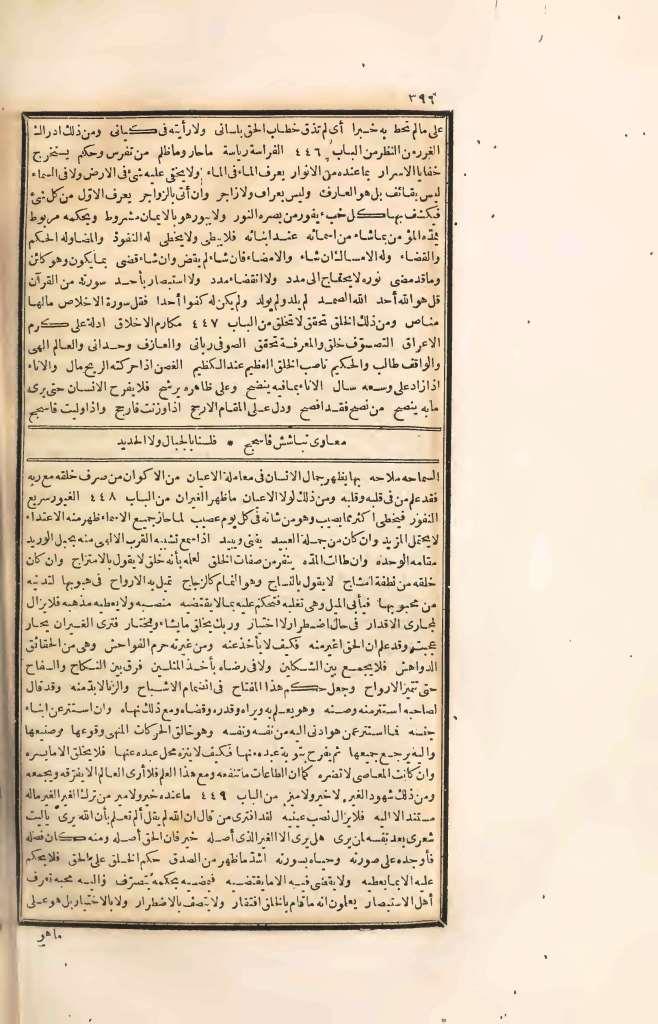 ٣٩٦
على مالم تحط به خبرا أى لم تذق خطاب الحق بلسانى ولا رأيته فى كيانى ومن ذلك ادراك
الغرر من النظر من الباب ٤٤٦ الفراسة رياسة ما حار وما ظلم من تفرس وحكم يستخرج
خفايا الاسرار بما عنده من الانوار يعرف الماء فى الماء ولا يخفى عليه شئ فى الارض ولا فى السماء
ليس بقائف بل هو العارف وليس بعراف ولا زاجر وان أتى بالزواجر يعرف الاول من كل شئ
فيكشف بها كل خبء يفور من بصره النور ولا يبور هو بالايمان مشروط وبحكمه مربوط
يمده المؤمن بما شاء من اسمائه عند ابنائه فلا يبطى ولا يخطى له النفوذ والمضا وله الحكم
والقضاء وله الامساك ان شاء والامضاء فان شاء لم يقض وان شاء قضى بما يكون وهو كائن
وما قد مضى نوره لا يحتاج الى مدد ولا انقضاء مدد ولا استبصار بأحد سورته من القرآن
قل هو الله أحد الله الصمد لم يلد ولم يولد ولم يكن له كفوا أحدا فقل سورة الاخلاص مالها
مناص ومن ذلك الخلق تحقق لا تخلق من الباب ٤٤٧ مكارم الاخلاق ادلة على كرم
الاعراق التصوف خلق والمعرفة تحقق الصوفى ربانى والعارف وحدانى والعالم الهى
والواقف طالب والحكيم ناصب الخلق العظيم عند الكظيم الغصن اذا حركته الريح مال والاناء
اذا زاد على وسعه سال الاناء بما فيه ينضح وعلى ظاهره يرشح فلا يفرح الانسان حتى يرى
مابه ينصح من نصح فقد افصح ودل على المقام الارجح اذا وزنت فارجح واذا وليت فاسجح
معاوى انا بشر فاسجح * فلسنا بالجبال ولا الحديد
السماحه ملاحه بها يظهر جمال الانسان فى معاملة الاعيان من الاكوان من صرف خلقه مع ربه
فقد علم من فى قلبه وقلبه ومن ذلك لولا الاعيان ما ظهر الغيران من الباب ٤٤٨ الغيور سريع
النفور فيخطى أكثر مما يصيب وهو من شأنه فى كل يوم عصيب لما حاز جميع الاسماء ظهر منه الاعتداء
لا يحتمل المزيد وان كان من جملة العبيد يفنى ويبيد اذا سمع تشبيه القرب الالهى منه بحبل الوريد
مقامه الوحده وان طالت المده ينفر من صفات الخلق لعله بأنه خلق لا يقول بالامتزاج وان كان
خلقه من نطفة امشاج لا يقول بالنساج وهو التمام كالزجاج تميل به الارواح فى هبوبها لتدنيه
من محبوبها فيأبى الميل وهى تغلبه فتحكم عليه بما لا يقتضيه منصبه ولا يعطيه مذهبه فلا يزال
لمجارى الاقدار فى حال اضطرار لا اختيار وربك يخلق ما يشاء ويختار فترى الغيران يحار
وقد علم ان الحق اغير منه فكيف لا يأخذ عنه ومن غيرته حرم الفواحش وهى من الحقائق
الدواهش فلا يجمع بين الشكلين ولا فى رضاه بأخذ المثلين فرق بين النكاح والسفاح
حتى تتميز الارواح وجعل حكم هذا المفتاح فى انضمام الاشباح والزنا لابد منه وقد قال
لصاحبه استتر منه وصنه وهو يعلم به ويراه وقدره وقضاه ومع ذلك نهاه وان استتر عن ابناء
جنسه فما استتر عن هو ادنى اليه من نفسه ونفسه وهو خالق الحركات المنهى وقوعها وصنيعها
واليه يرجع جميعها ثم يفرح بتوبة عبده منها فكيف لا ينزه محل عبده عنها فلا يخلق الا ما يسره
وان كانت المعاصى لا تضره كما ان الطاعات ما تنفعه ومع هذا العلم فلا أرى العالم الا يفرقه ويجمعه
ومن ذلك شهود الغير لا خير ولا مير من الباب ٤٤٩ ما عنده خير ولا مير من ترك الغير الغير ماله
مستند الا اليه فلا يزال نصب عينيه لقد افترى من قال ان الله لم يقل ألم تعلم بأن الله يرى يا ليت
شعرى بعد نفسه لمن يرى هل يرى الا الغير الذى أصله خير فان الحق أصله ومنه كان فصله
فأوجده على صورته وحباه بسورته اشد ما ظهر من الصدق حكم الخلق على الحق فلا يحكم
عليه الا بما يعطيه ولا يقضى فيه الا ما يقتضيه فيمضيه بحكمه تصرف واليه محبه تعرف
أهل الاستبصار يعلمون انه ما قام بالخلق افتقار ولا يتصف بالاضطرار ولا بالاختيار بل هو على
ما هو